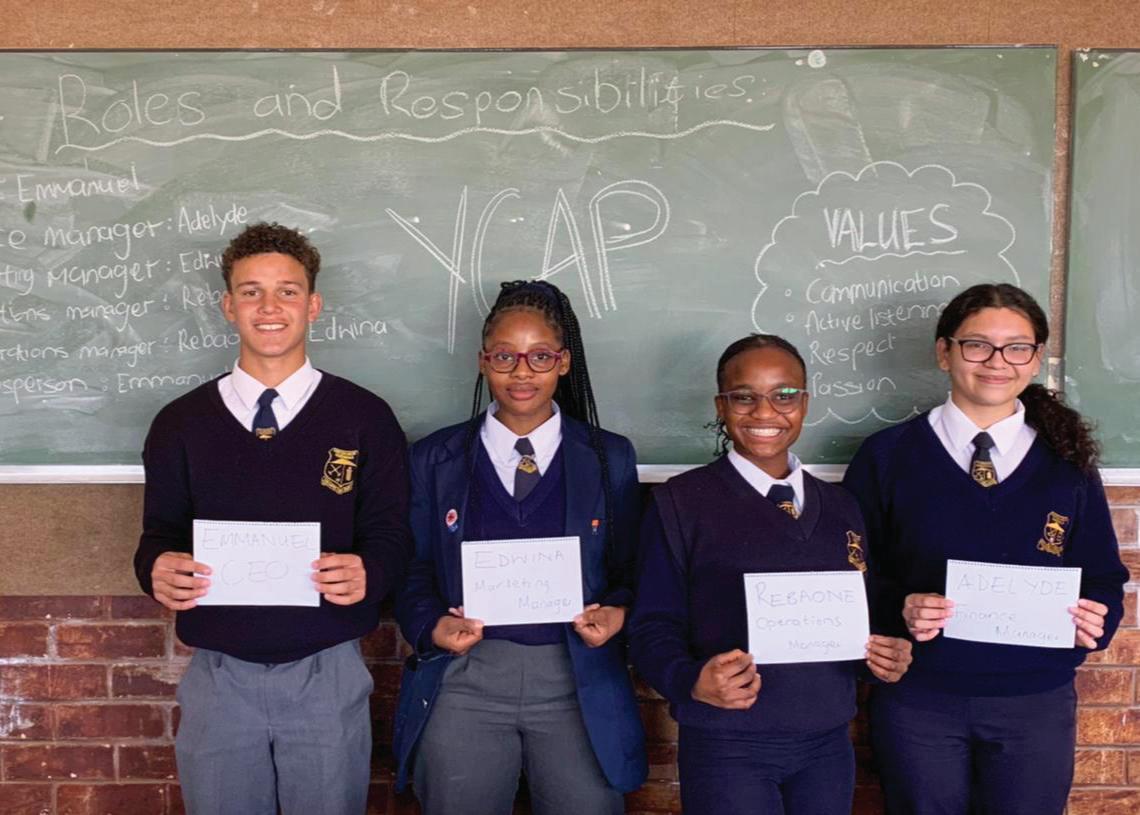 Roles and Responsibilities:
: Emmanuel
ce manager : Adelyde
ting manager : Edwi
tions manager : Reba
rations manager : Rebao Edwina
sperson : Emmanu
YCAP
VALUES
Communication
Active listening
Respect
Passion
EMMANUEL
CEO
EDWINA
Marketing
Manager
REBAONE
Operations
Manager
ADELYDE
Finance
Manager